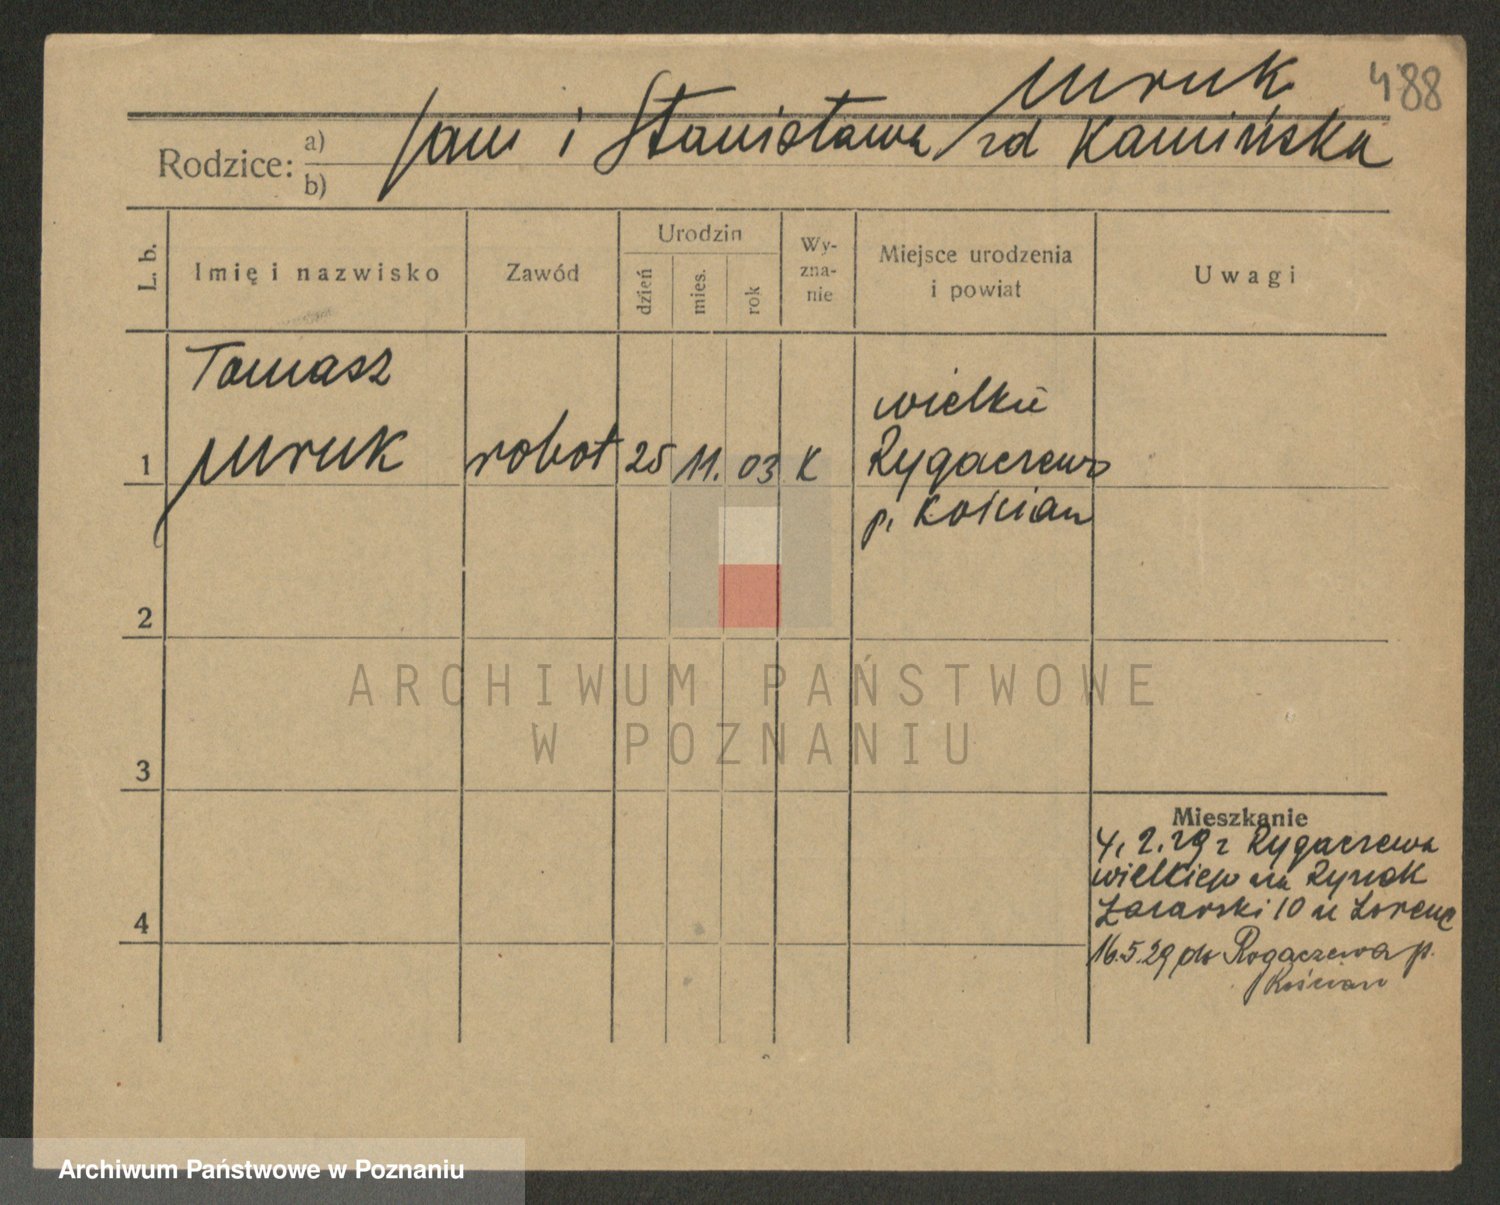 Mruk
488
Rodzice: a) Jan i Stanisława zd Kamińska
b)
L. b.
Imię i nazwisko
Zawód
Urodzin
dzień
mies.
rok
Wy-
zna-
nie
Miejsce urodzenia
i powiat
Uwagi
Tomasz
wielkie
1 Mruk robot 25 11. 03 K Rygaczewo
p. Kościan
2
3
4
ARCHIWUM PAŃSTWOWE
W POZNANIU
Mieszkanie
4. 2. 29 z Rygaczewa
wielkiego na Rynek
Łazarski 10 u Lorenc
16.5.29 do Rogaczewa p.
Kościan
Archiwum Państwowe w Poznaniu